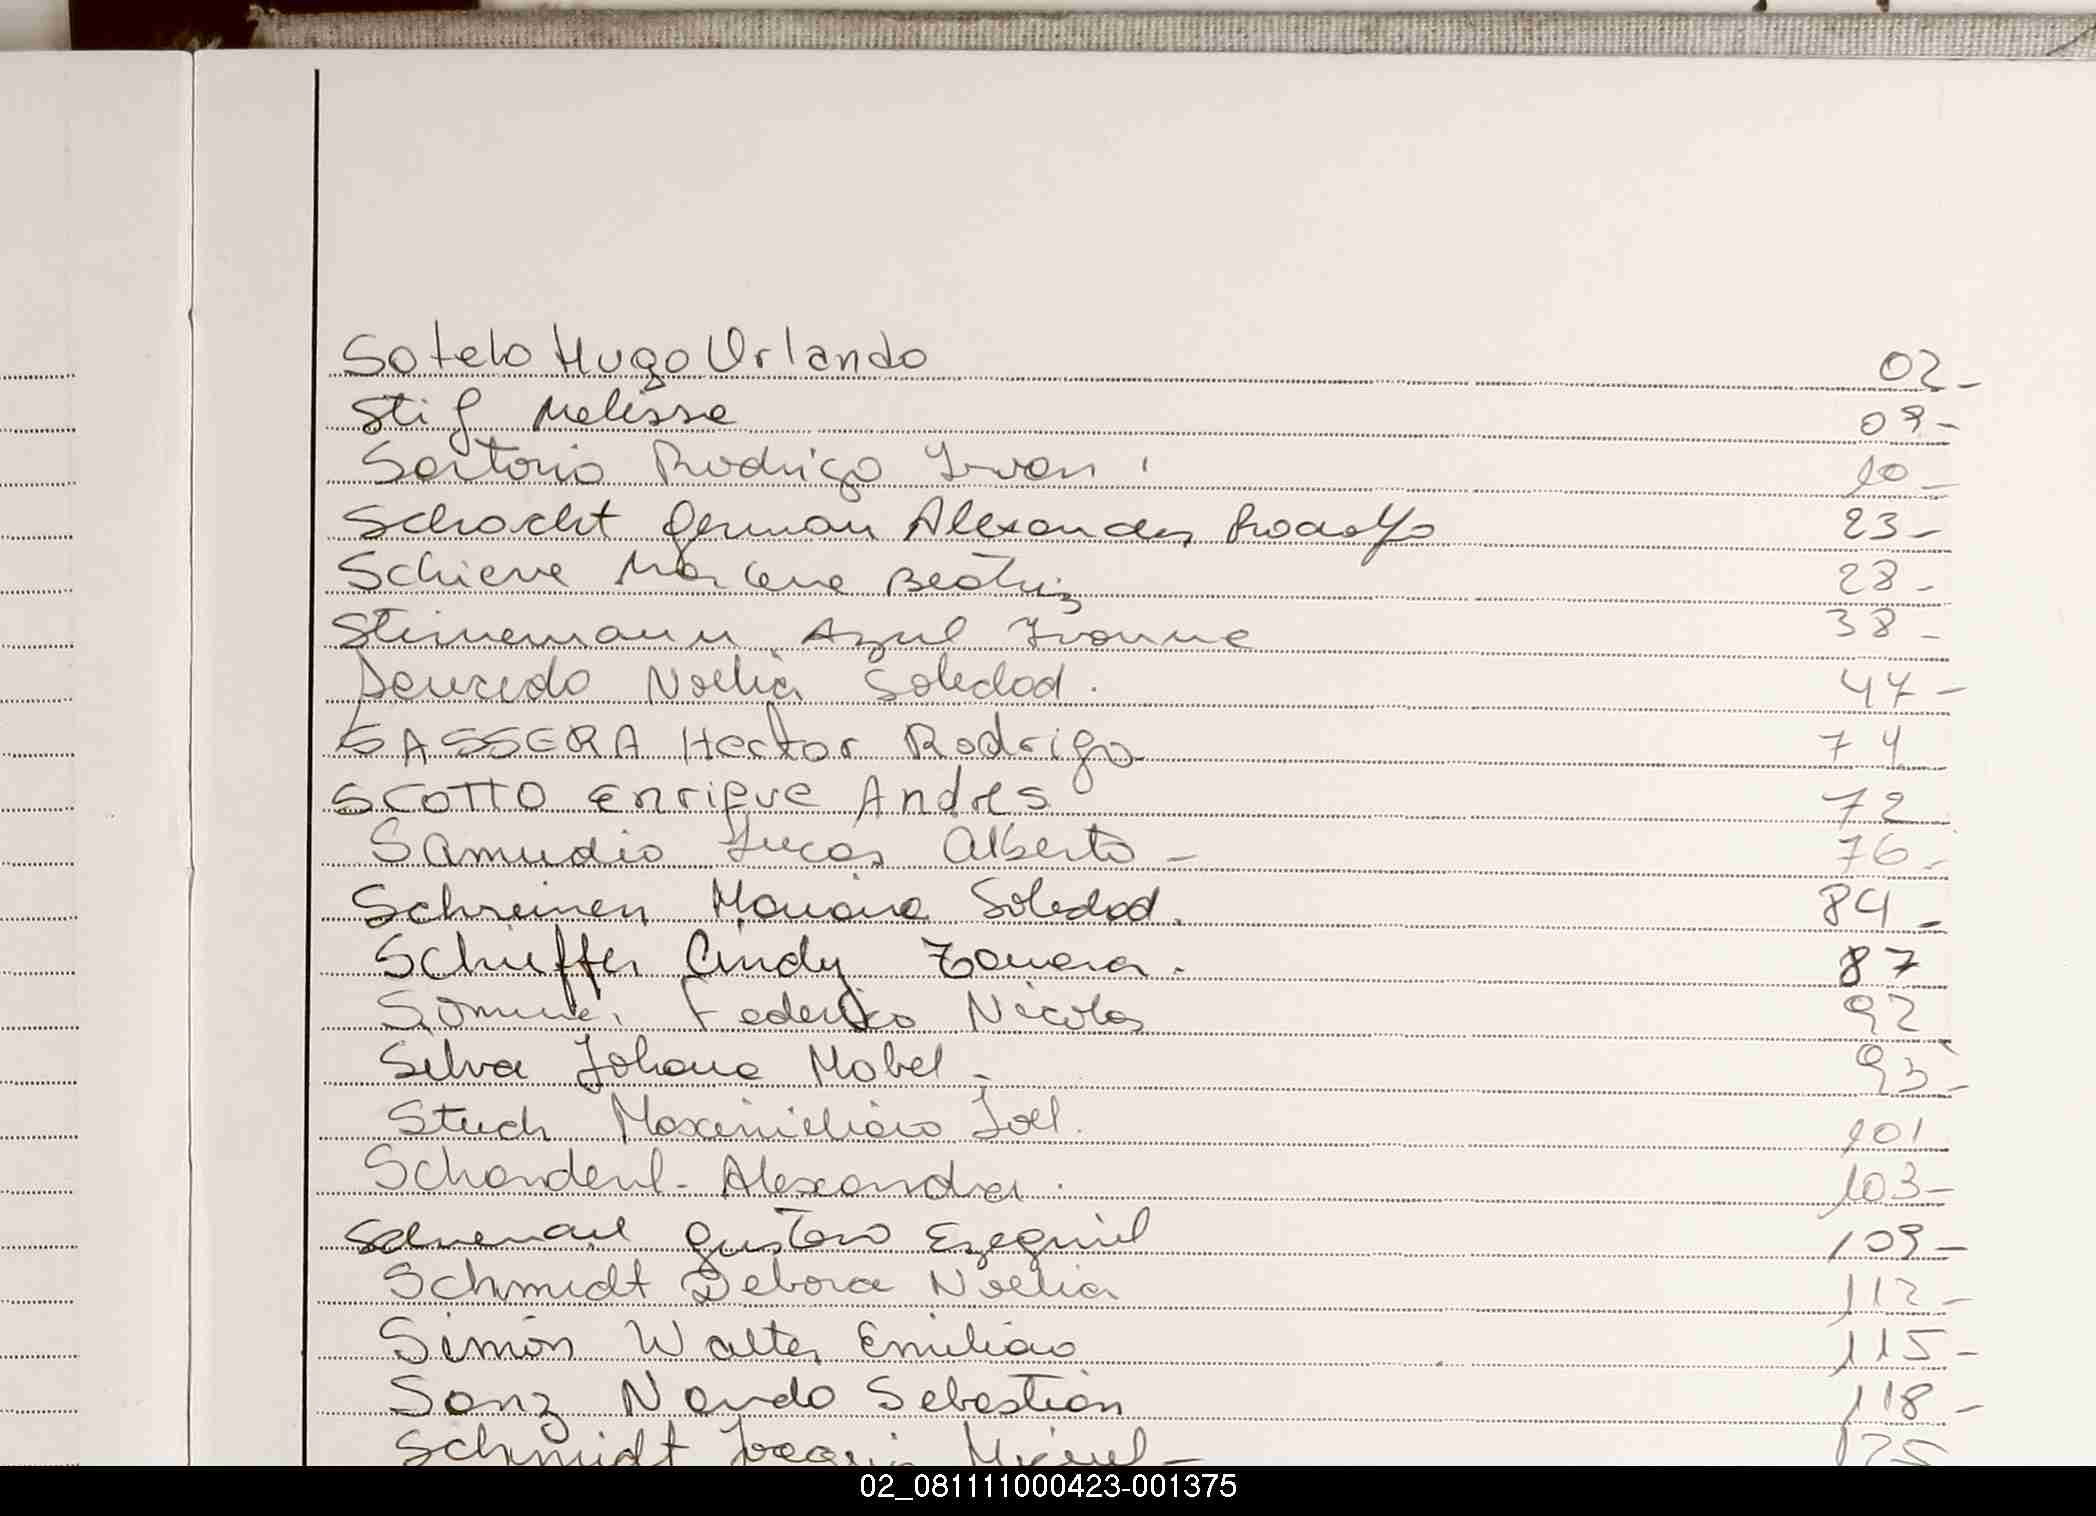 Sotelo Hugo Orlando 02-
Stif Melissa 09-
Sartorio Rodrigo Ivan 10-
Schacht German Alexander Rodolfo 23-
Schieve Marlene Beatriz 28-
Steinemann Azul Ivonne 38-
Noelia Soledad. 47-
SASSERA Hector Rodrigo 71
SCOTTO Enrique Andres 72
Samudio Lucas Alberto - 76-
Schreiner Mariana Soledad. 84-
Schieffer Cindy Tamara. 87
Federico Nicolas 92
Silva Johana Mabel - 93-
Maximiliano Joel. 101
Alexandra. 103-
Gustavo Ezequiel 109-
Schmidt Debora Noelia 112-
Simón Walter Emiliano 115-
Sanz Nardo Sebastián 118-
Schmidt Joaquin Miguel- 125
02_081111000423-001375